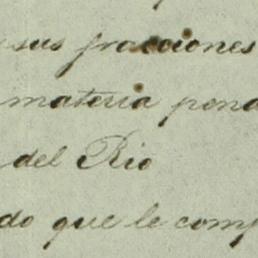 sus fracciones
materia pena
del Rio
do que le comp